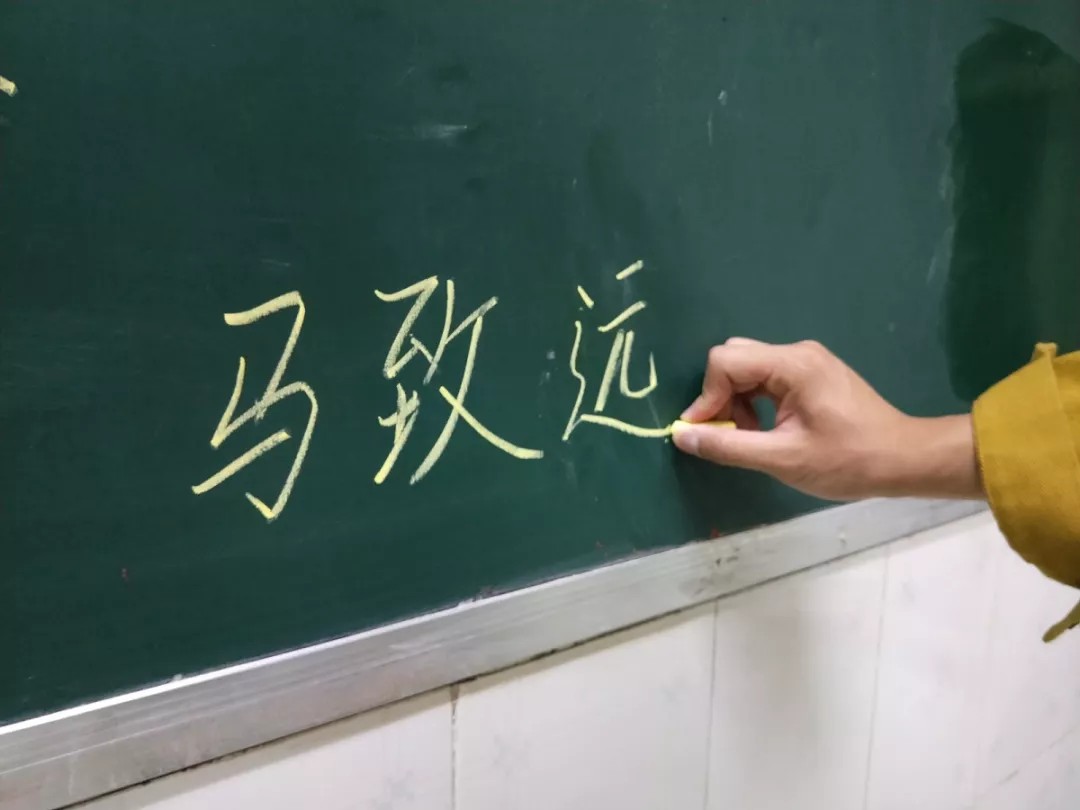 马致远